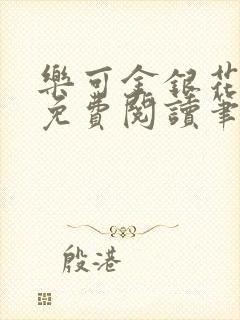 樂可金銀花
免費閱讀筆
殷港